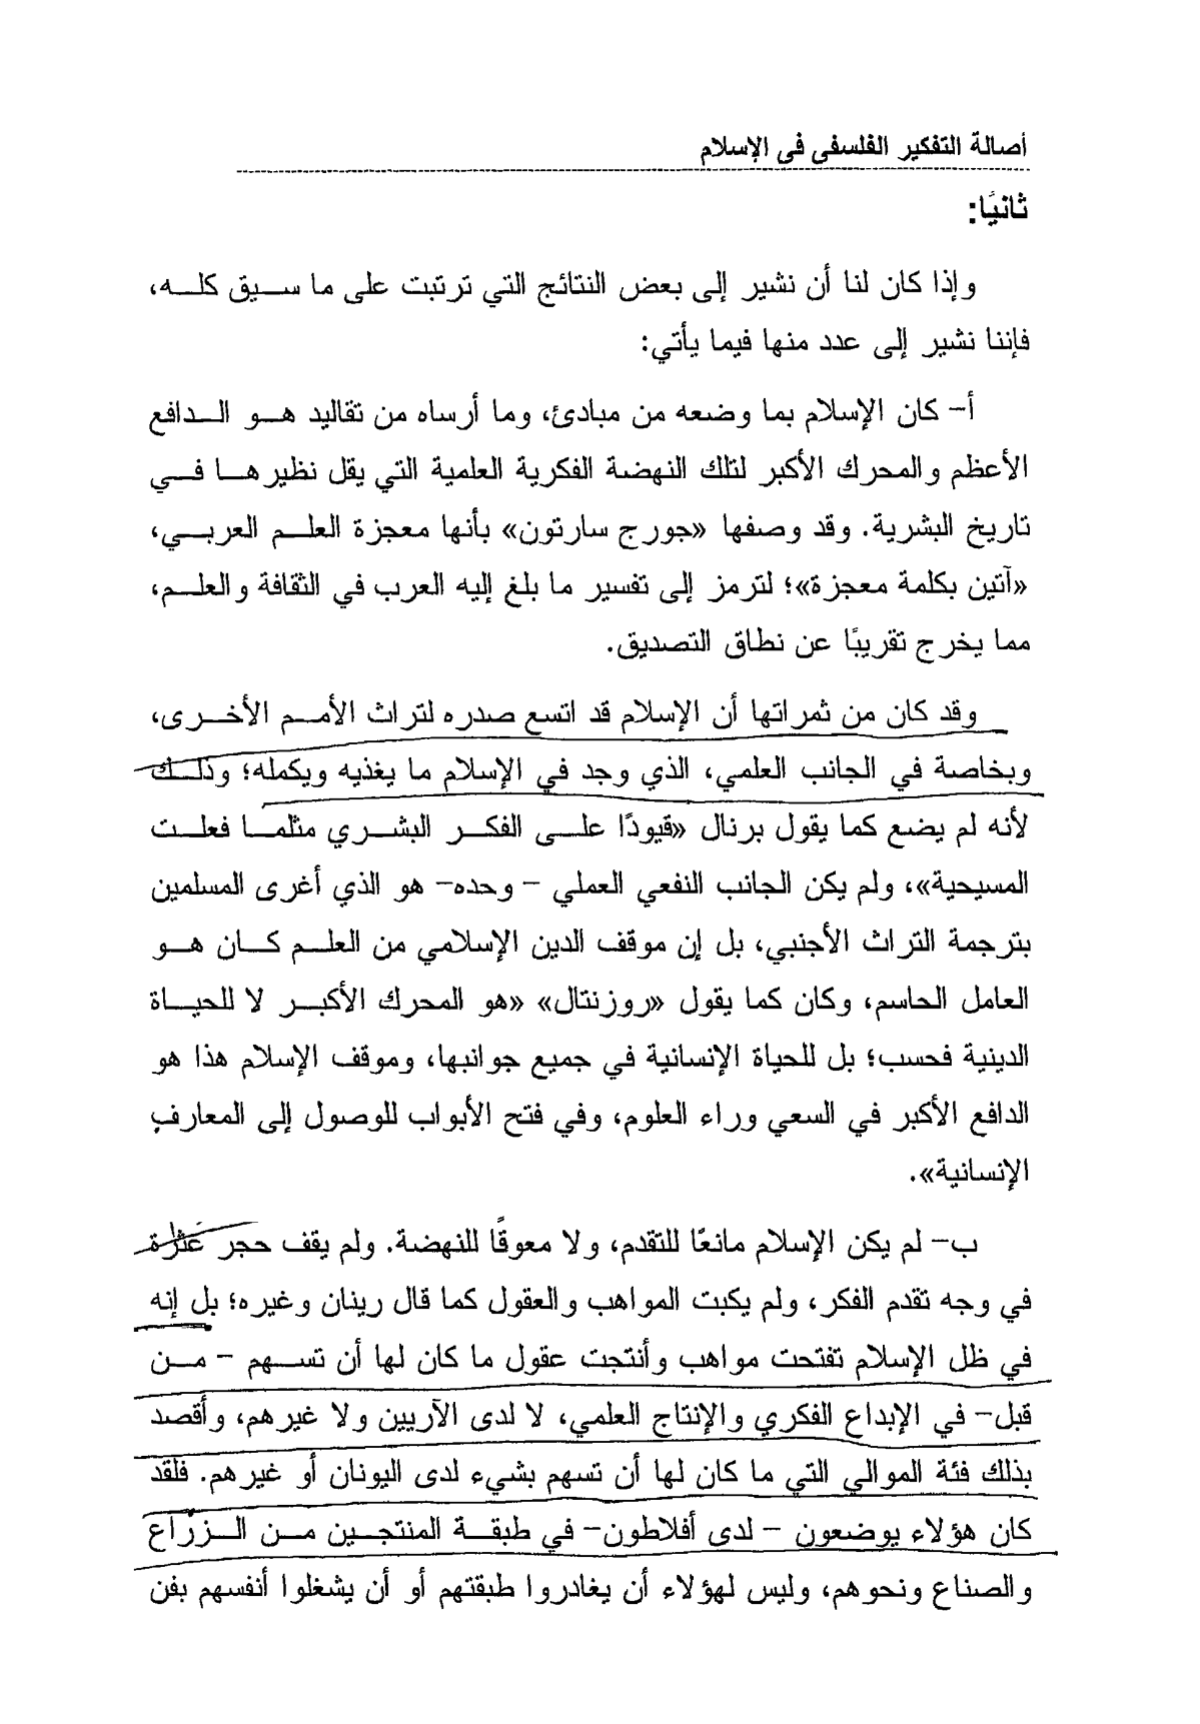 أصالة التفكير الفلسفى فى الإسلام
ثانيًا:
وإذا كان لنا أن نشير إلى بعض النتائج التي ترتبت على ما سيق كله،
فإننا نشير إلى عدد منها فيما يأتي:
أ- كان الإسلام بما وضعه من مبادئ، وما أرساه من تقاليد هو الدافع
الأعظم والمحرك الأكبر لتلك النهضة الفكرية العلمية التي يقل نظيرها في
تاريخ البشرية. وقد وصفها «جورج سارتون» بأنها معجزة العلم العربي،
«آتين بكلمة معجزة»؛ لترمز إلى تفسير ما بلغ إليه العرب في الثقافة والعلم،
مما يخرج تقريبًا عن نطاق التصديق.
وقد كان من ثمراتها أن الإسلام قد اتسع صدره لتراث الأمم الأخرى،
وبخاصة في الجانب العلمي، الذي وجد في الإسلام ما يغذيه ويكمله؛ وذلك
لأنه لم يضع كما يقول برنال «قيودًا على الفكر البشري مثلما فعلت
المسيحية»، ولم يكن الجانب النفعي العملي - وحده- هو الذي أغرى المسلمين
بترجمة التراث الأجنبي، بل إن موقف الدين الإسلامي من العلم كان هو
العامل الحاسم، وكان كما يقول «روزنتال» «هو المحرك الأكبر لا للحياة
الدينية فحسب؛ بل للحياة الإنسانية في جميع جوانبها، وموقف الإسلام هذا هو
الدافع الأكبر في السعي وراء العلوم، وفي فتح الأبواب للوصول إلى المعارف
الإنسانية».
ب- لم يكن الإسلام مانعًا للتقدم، ولا معوقًا للنهضة. ولم يقف حجر عَثرة
في وجه تقدم الفكر، ولم يكبت المواهب والعقول كما قال رينان وغيره؛ بل إنه
في ظل الإسلام تفتحت مواهب وأنتجت عقول ما كان لها أن تسهم - من
قبل- في الإبداع الفكري والإنتاج العلمي، لا لدى الآريين ولا غيرهم، وأقصد
بذلك فئة الموالي التي ما كان لها أن تسهم بشيء لدى اليونان أو غيرهم. فلقد
كان هؤلاء يوضعون - لدى أفلاطون- في طبقة المنتجين من الزرّاع
والصناع ونحوهم، وليس لهؤلاء أن يغادروا طبقتهم أو أن يشغلوا أنفسهم بفن